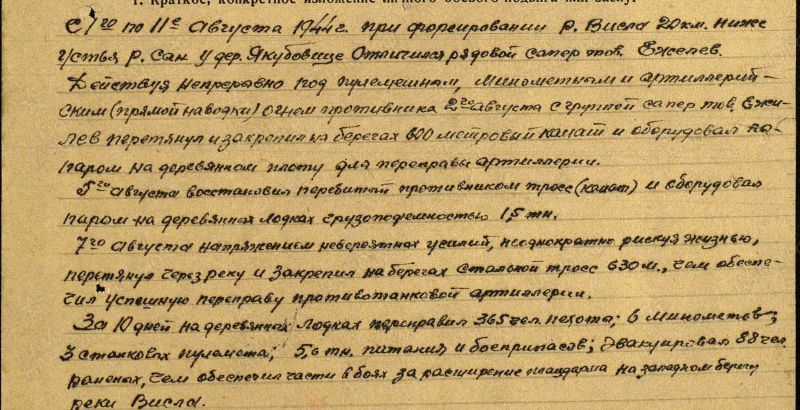 1. Краткое, конкретное изложение личного боевого подвига или заслуг
С 1го по 11е Августа 1944г. при форсировании р. Висла 20 км. ниже
устья р. Сан у дер. Якубовице отличился рядовой сапер тов. Ежелев.
Действуя непрерывно под пулеметным, минометным и артиллерий-
ским (прямой наводки) огнем противника 2го августа с группой сапер тов. Ежи-
лев перетянул и закрепил на берегах 600 метровый канат и оборудовал
паром на деревянном плоту для переправы артиллерии.
5го Августа восстановил перебитый противником тросс (канат) и оборудовал
паром на деревянных лодках грузоподемностью 1,5 тн.
7го Августа напряжением невероятных усилий, неоднократно рискуя жизнью,
перетянул через реку и закрепил на берегах стальной тросс 630 м., чем обеспе-
чил успешную переправу противотанковой артиллерии.
За 10 дней на деревянных лодках переправил 365 чел. пехоты; 6 минометов;
3 станковых пулемета; 5,6 тн. питания и боеприпасов; эвакуировал 88 чел
раненых, чем обеспечил части в боях за расширение плацдарма на западном берегу
реки Висла.